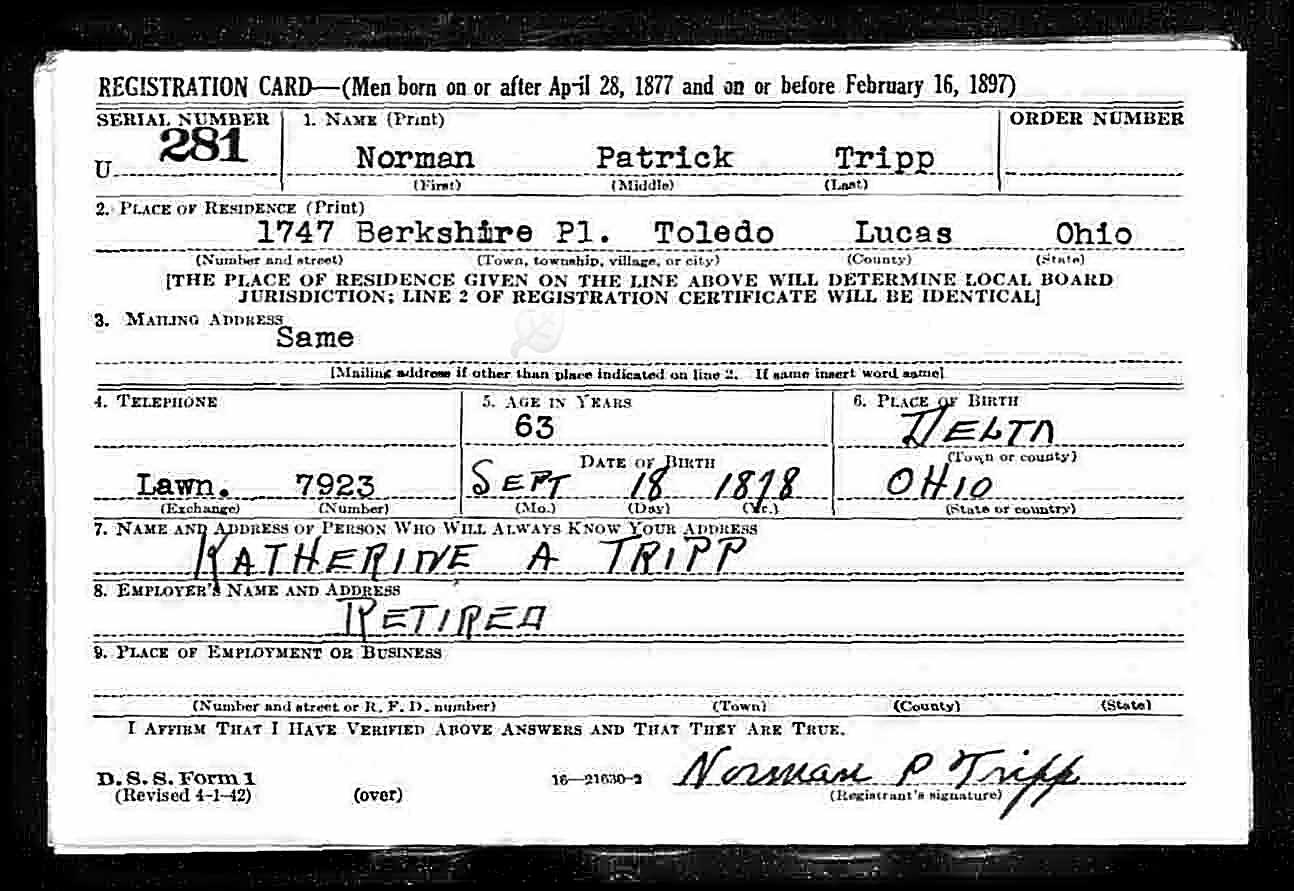 REGISTRATION CARD—(Men born on or after April 28, 1877 and on or before February 16, 1897)
SERIAL NUMBER 1. NAME (Print) ORDER NUMBER
U 281 Norman Patrick Tripp
(First) (Middle) (Last)
2. PLACE OF RESIDENCE (Print)
1747 Berkshire Pl. Toledo Lucas Ohio
(Number and street) (Town, township, village, or city) (County) (State)
[THE PLACE OF RESIDENCE GIVEN ON THE LINE ABOVE WILL DETERMINE LOCAL BOARD
JURISDICTION; LINE 2 OF REGISTRATION CERTIFICATE WILL BE IDENTICAL]
3. MAILING ADDRESS
Same
[Mailing address if other than place indicated on line 2. If same insert word same]
4. TELEPHONE 5. AGE IN YEARS 6. PLACE OF BIRTH
63 DELTA
DATE OF BIRTH (Town or county)
Lawn. 7923 SEPT 18 1878 OHIO
(Exchange) (Number) (Mo.) (Day) (Yr.) (State or country)
7. NAME AND ADDRESS OF PERSON WHO WILL ALWAYS KNOW YOUR ADDRESS
KATHERINE A TRIPP
8. EMPLOYER'S NAME AND ADDRESS
RETIRED
9. PLACE OF EMPLOYMENT OR BUSINESS
(Number and street or R. F. D. number) (Town) (County) (State)
I AFFIRM THAT I HAVE VERIFIED ABOVE ANSWERS AND THAT THEY ARE TRUE.
D. S. S. Form 1 16—21630-2 Norman P Tripp
(Revised 4-1-42) (over) (Registrant's signature)